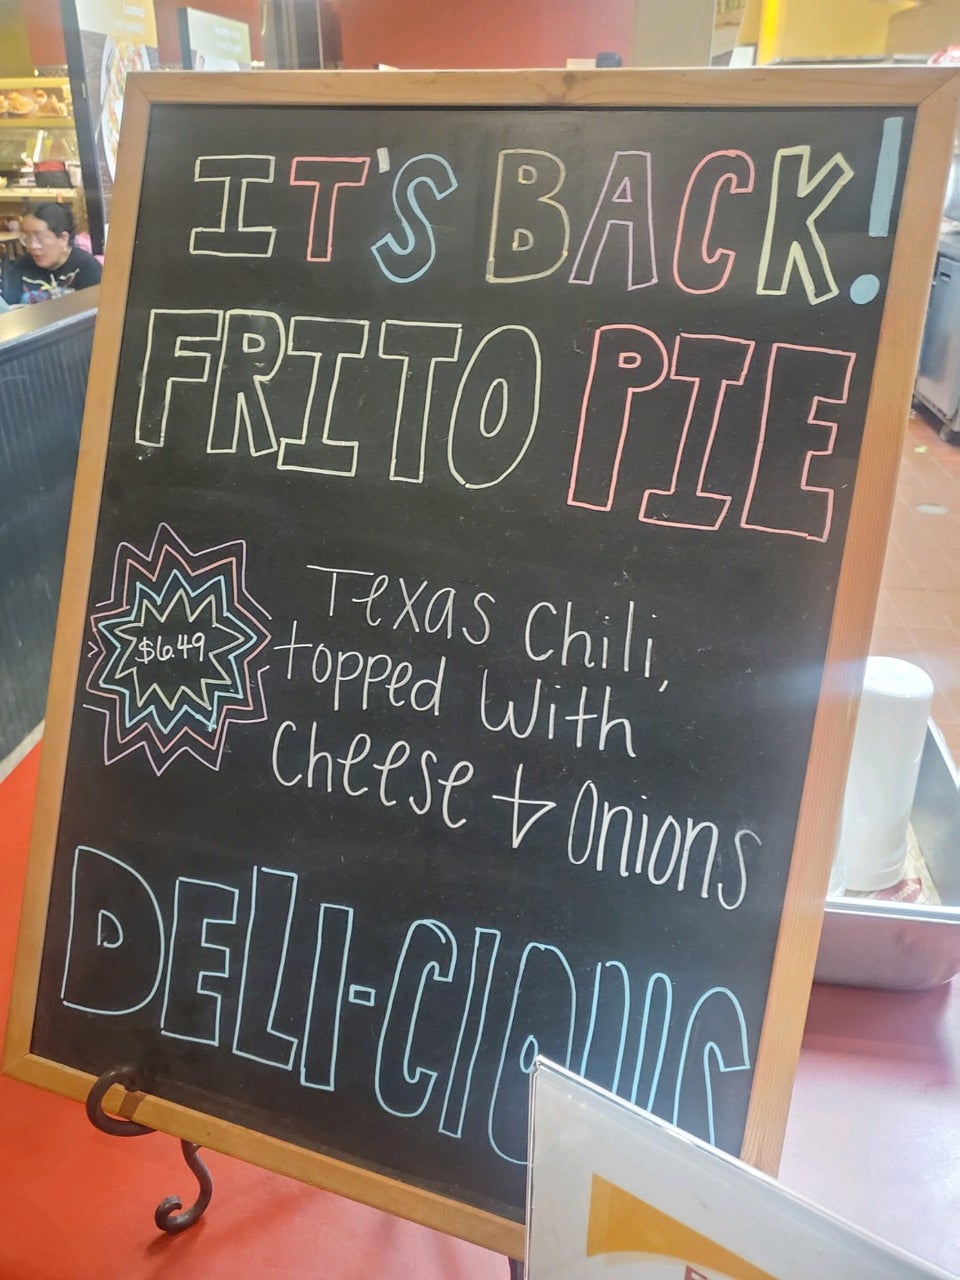 IT'S BACK!
FRITO PIE
$6.49
Texas Chili,
topped with
Cheese + Onions
DELI-CIOUS